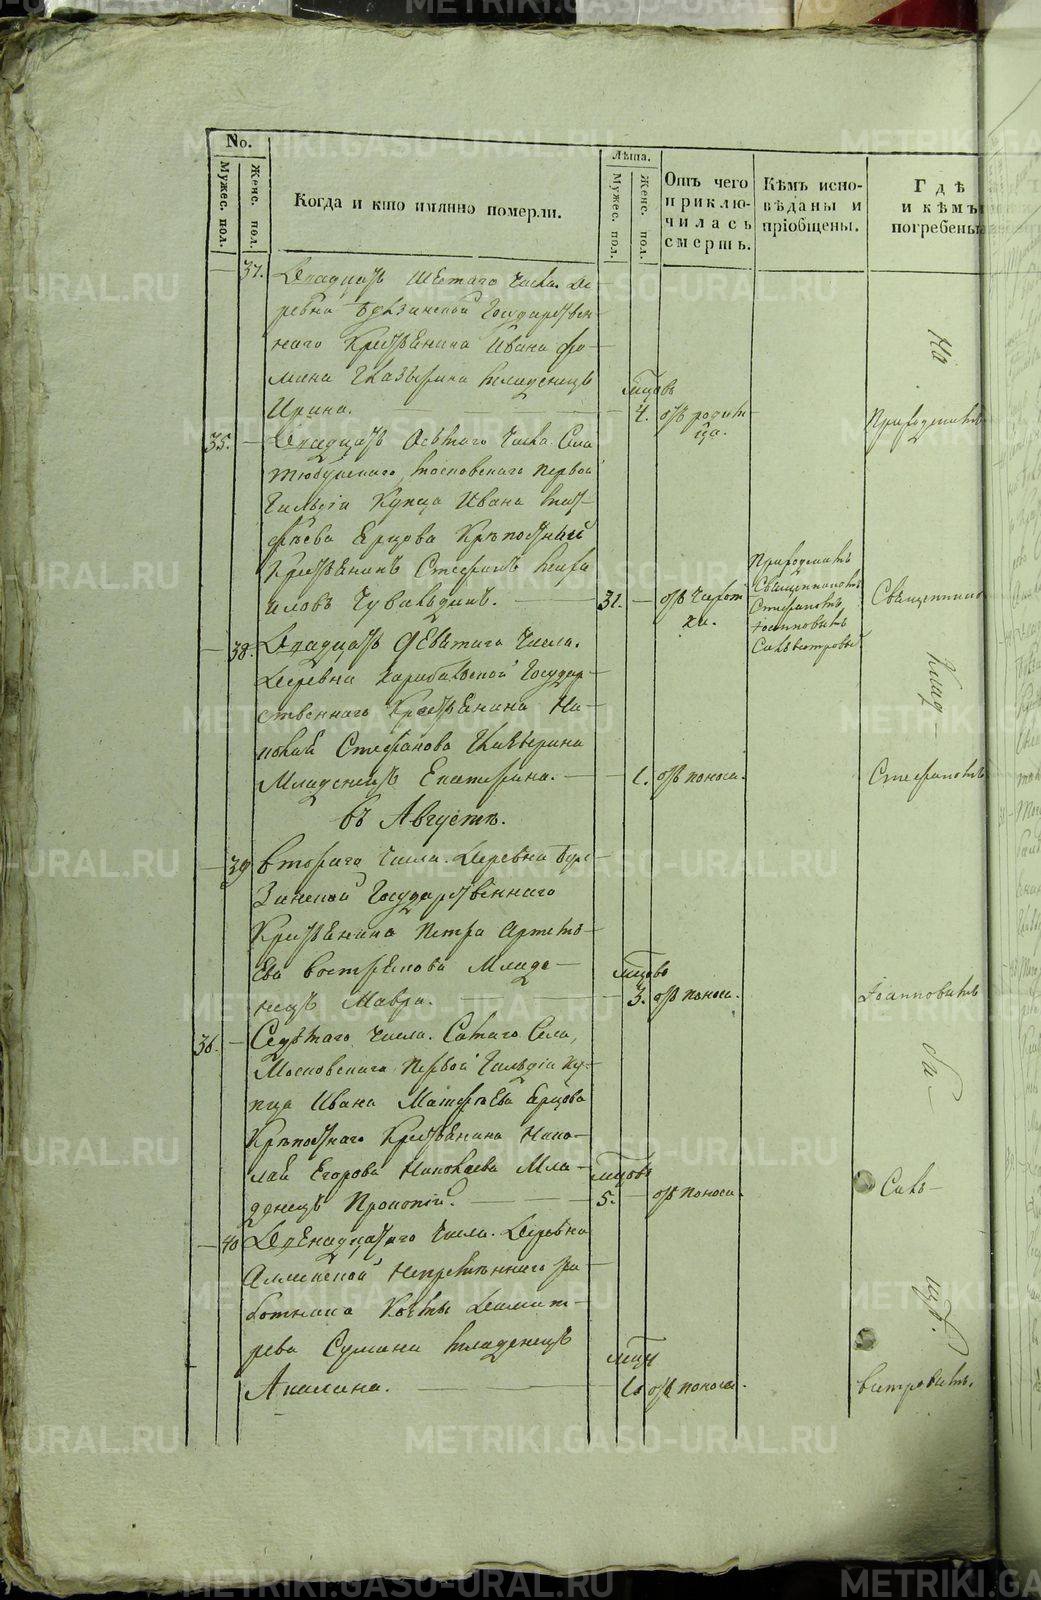 No.
Мужес. пол.
Женс. пол.
Когда и кто имянно померли.
Лѣта.
Мужес. пол.
Женс. пол.
Отъ чего приключилась смерть.
Кѣмъ исповѣданы и пріобщены.
Гдѣ и кѣмъ погребены
37.
Двадцать шестаго числа. Де-
ревни Государствен-
наго Крестьянина Ивана Фо-
мина младенецъ
Ирина.
мцовъ
4. отъ родим-
ца.
На
Приходскимъ
35.
Двадцать осьмаго числа. Села
Московскаго первой
Гильдіи Купца Ивана Мат-
фѣева Ерцова Крѣпостный
Крестьянинъ Стефанъ
31. отъ чахот
ки.
Приходскимъ
Священникомъ
Стефаномъ
Іоанновымъ
Сильвестровы
Священнико
38.
Двадцать девятаго числа.
Деревни Государ-
ственнаго Крестьянина Ни-
колай Стефанова
Младенецъ Екатерина.
1. отъ поноса.
Клад-
Стефаномъ
въ Августѣ.
39
Втораго числа. Деревни Бур-
зинской Государственнаго
Крестьянина Петра Артемь-
ева Вострякова Младе-
нецъ Мавра.
мцовъ
3. отъ поноса.
Іоанновымъ
36.
Седьмаго числа. Сагаго Села,
Московскаго Первой Гильдіи Ку-
пца Ивана Матфѣева Ерцова
Крѣпостнаго Крестьянина Нико-
лай Егорова Николаева Мла-
денецъ Прокопій.
мцовъ
5. отъ поноса.
Силь-
40
Двенадцатаго числа. Деревни
Непремѣннаго ра-
ботника Димит-
рева младенецъ
Акилина.
мцъ
отъ поноса.
вестровымъ.
METRIKI.GASO-URAL.RU